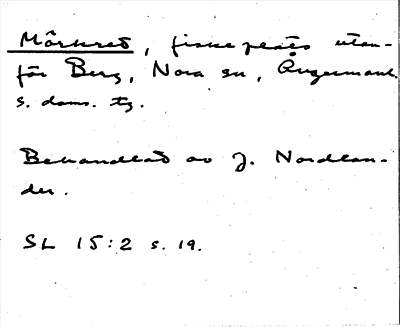 Mörkret, fiskeplats utan-
för Berg, Nora sn, Ångermanl.
s. doms. tg.
Behandlad av J. Nordlan-
der.
SL 15:2 s. 19.